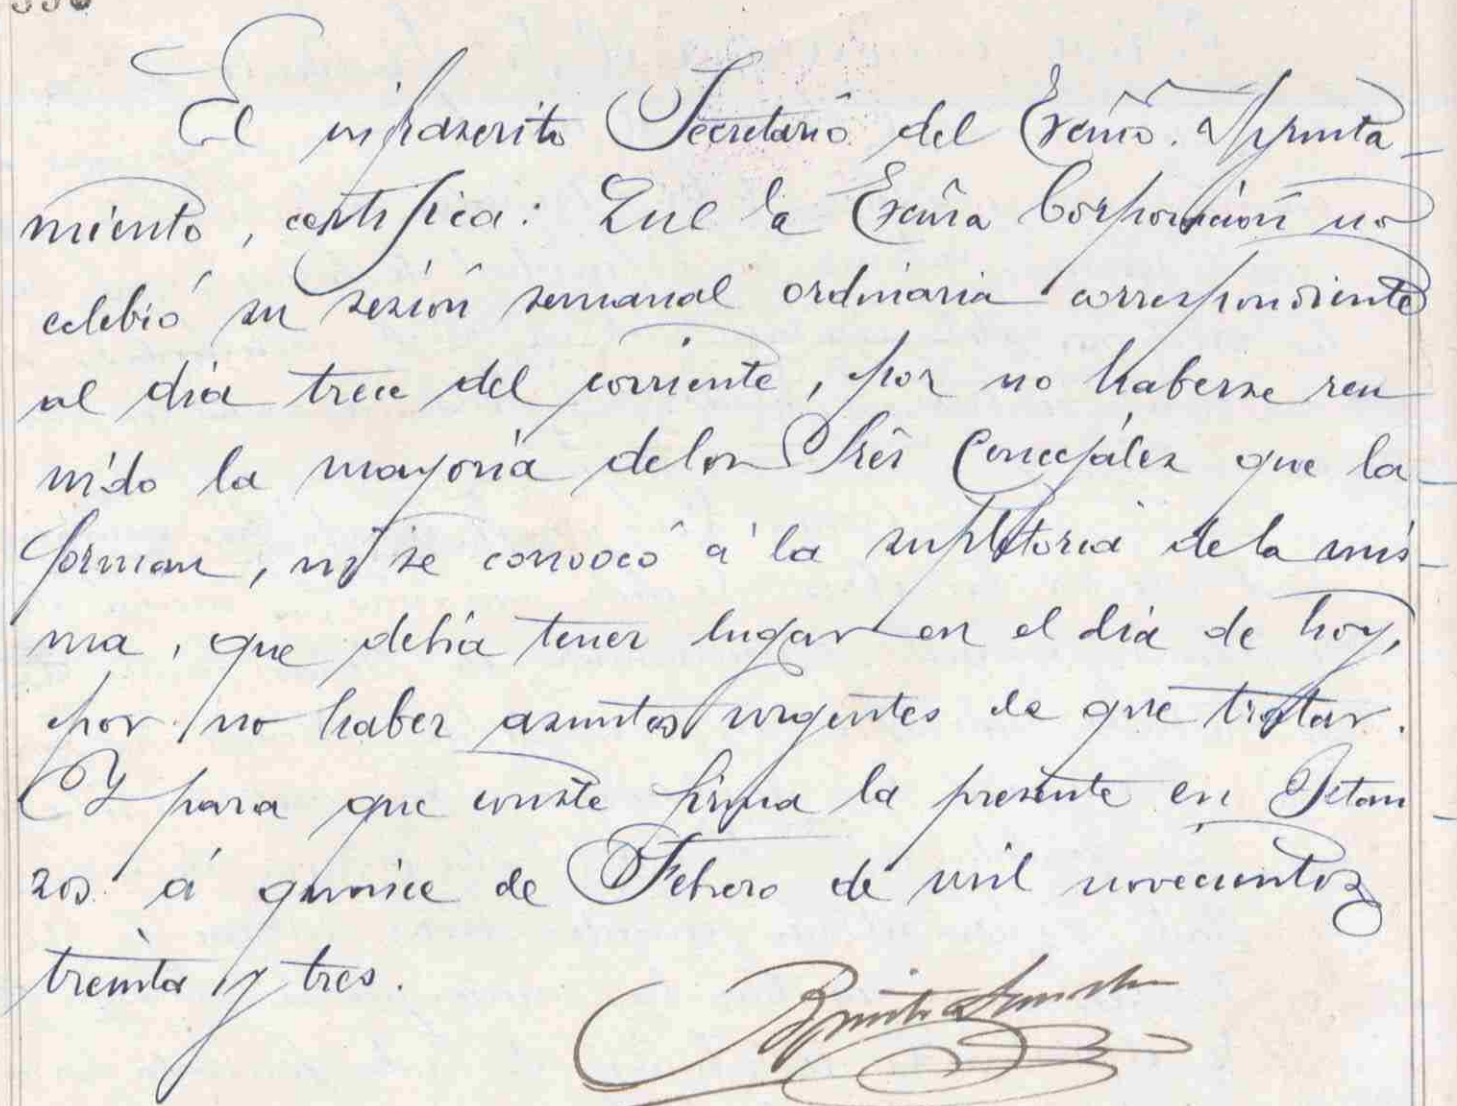 El infrascrito Secretario del Excmo. Ayunta-
miento, certifica: Que la Excma Corporación no
celebró su sesión semanal ordinaria correspondiente
al día trece del corriente, por no haberse reu
nido la mayoría de los Sres Concejales que la
forman, ni se convocó á la supletoria de la mis-
ma, que debía tener lugar en el día de hoy,
por no haber asuntos urgentes de que tratar.
Y para que conste firma la presente en Betan
zos á quince de Febrero de mil novecientos
treinta y tres.